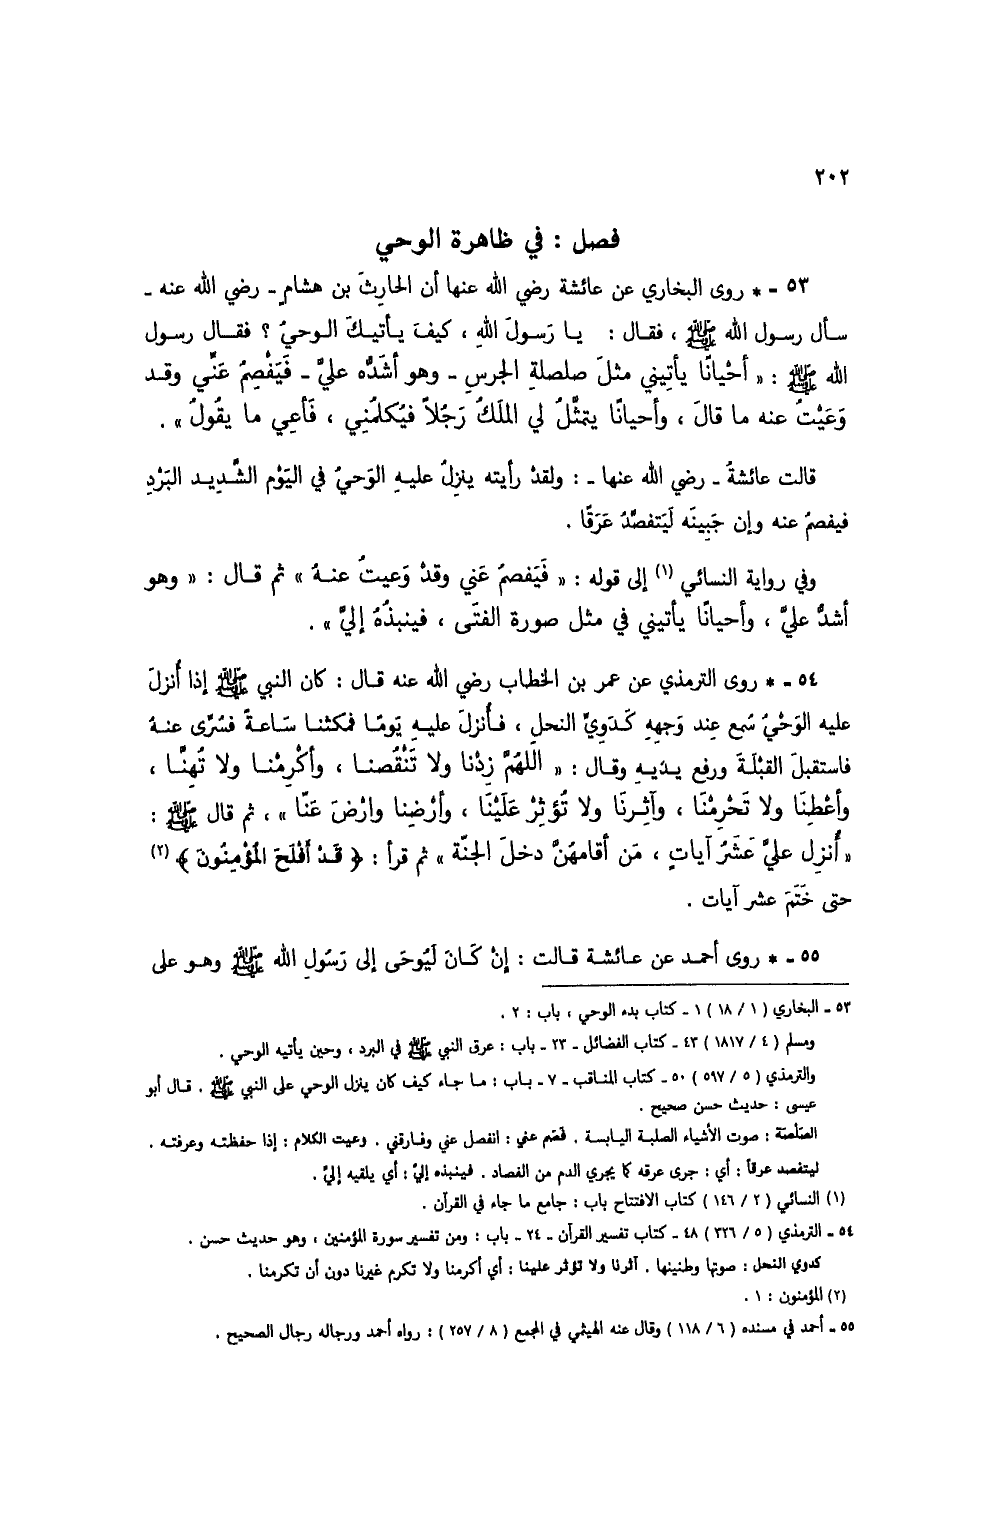 ٢٠٢
فصل : في ظاهرة الوحي
٥٣ - * روى البخاري عن عائشة رضي الله عنها أن الحارِثَ بن هشامٍ - رضي الله عنه -
سأل رسول الله ﷺ ، فقال : يا رَسولَ اللهِ ، كيفَ يأتيكَ الوحيُ ؟ فقال رسول
الله ﷺ : « أحْيانًا يأتِيني مثلَ صلصلةِ الجرسِ - وهو أشَدُّه عليَّ - فَيَفْصِمُ عَنِّي وقد
وَعَيْتُ عنه ما قالَ ، وأحيانًا يتمثَّلُ لي الملَكُ رَجُلاً فيُكلمُني ، فَأعِي ما يقُولُ » .
قالت عائشةُ - رضي الله عنها - : ولقدْ رأيته ينزِلُ عليهِ الوَحيُ في اليَوْمِ الشَّدِيدِ البَرْدِ
فيفصمُ عنه وإن جَبِينَه لَيَتفصَّدُ عَرَقًا .
وفي رواية النسائي (١) إلى قوله : « فَيَفصمُ عَني وقدْ وَعيتُ عنهُ » ثم قال : « وهو
أشدُّ عليَّ ، وأحيانًا يأتيني في مثل صورة الفتَى ، فينبذُهُ إليَّ » .
٥٤ - * روى الترمذي عن عمر بن الخطاب رضي الله عنه قال : كان النبي ﷺ إذا أُنزلَ
عليه الوَحْيُ سُمع عِند وَجهِهِ كَدَوِيِّ النحلِ ، فأُنزلَ عليهِ يَومًا فمكثنا سَاعةً فسُرِّى عنهُ
فاستقبلَ القبْلَةَ ورفع يديَهِ وقال : « اللَهُمَّ زِدْنا ولا تَنْقُصنا ، وأكْرِمْنا ولا تُهِنَّا ،
وأعْطِنَا ولا تَحْرِمْنَا ، وآثِرنَا ولا تُؤثِرْ عَلَيْنَا ، وأرْضِنا وارْضَ عَنَّا » ، ثم قال ﷺ :
« أُنزل عليَّ عَشَرُ آياتٍ ، مَن أقامهُنَّ دخلَ الجنّة » ثم قرأ : ﴿ قَدْ أفْلَحَ المُؤْمِنُونَ ﴾ (٢)
حتى خَتَمَ عشر آيات .
٥٥ - * روى أحمد عن عائشة قالت : إنْ كَانَ لَيُوحَى إلى رَسُولِ الله ﷺ وهو على
٥٣ - البخاري ( ١ / ١٨ ) ١ - كتاب بدء الوحي ، باب : ٢ .
ومسلم ( ٤ / ١٨١٧ ) ٤٣ - كتاب الفضائل - ٢٣ - باب : عرق النبي ﷺ في البرد ، وحين يأتيه الوحي .
والترمذي ( ٥ / ٥٩٧ ) ٥٠ - كتاب المناقب - ٧ - باب : ما جاء كيف كان ينزل الوحي على النبي ﷺ . قال أبو
عيسى : حديث حسن صحيح .
الصلصلة : صوت الأشياء الصلبة اليابسة . فصم عني : انفصل عني وفارقني . وعيت الكلام : إذا حفظته وعرفته .
ليتفصد عرقاً : أي : جرى عرقه كما يجري الدم من الفصاد . فينبذه إليَّ : أي يلقيه إليَّ .
(١) النسائي ( ٢ / ١٤٦ ) كتاب الافتتاح باب : جامع ما جاء في القرآن .
٥٤ - الترمذي ( ٥ / ٣٢٦ ) ٤٨ - كتاب تفسير القرآن - ٢٤ - باب : ومن تفسير سورة المؤمنين ، وهو حديث حسن .
كدوي النحل : صوتها وطنينها . آثرنا ولا تؤثر علينا : أي أكرمنا ولا تكرم غيرنا دون أن تكرمنا .
(٢) المؤمنون : ١ .
٥٥ - أحمد في مسنده ( ٦ / ١١٨ ) وقال عنه الهيثمي في المجمع ( ٨ / ٢٥٧ ) : رواه أحمد ورجاله رجال الصحيح .